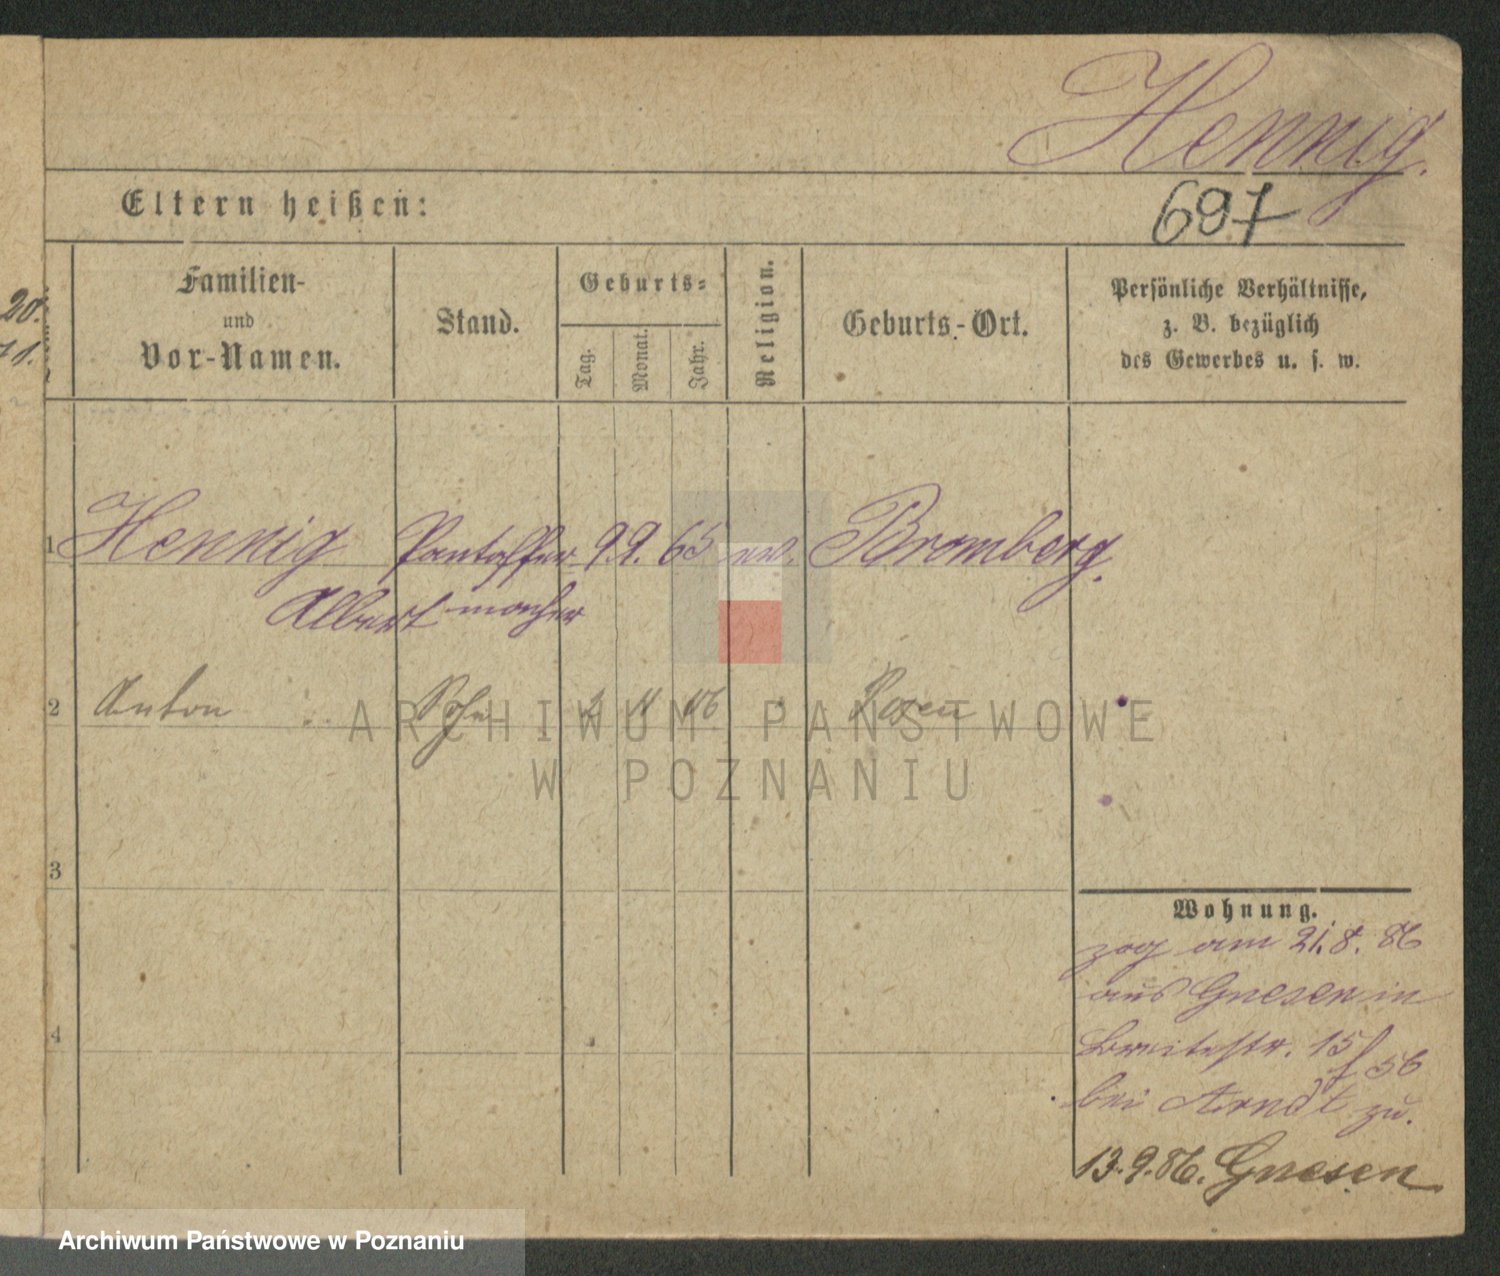 Hennig.
Eltern heißen:
697
20.
71.
Familien-
und
Vor-Namen.
Stand.
Geburts-
Tag.
Monat.
Jahr.
Religion.
Geburts-Ort.
Persönliche Verhältnisse,
z. B. bezüglich
des Gewerbes u. s. w.
1 Hennig Pantoffel 9. 9. 65 ev. Bromberg.
Albert macher
2 Anton Sohn 2 11 Posen
3
4
Wohnung.
zog am 21.8.86
aus Gnesen in
Breitestr. 15/56
bei Arndt zu.
13.9.86. Gnesen
ARCHIWUM PAŃSTWOWE
W POZNANIU
Archiwum Państwowe w Poznaniu